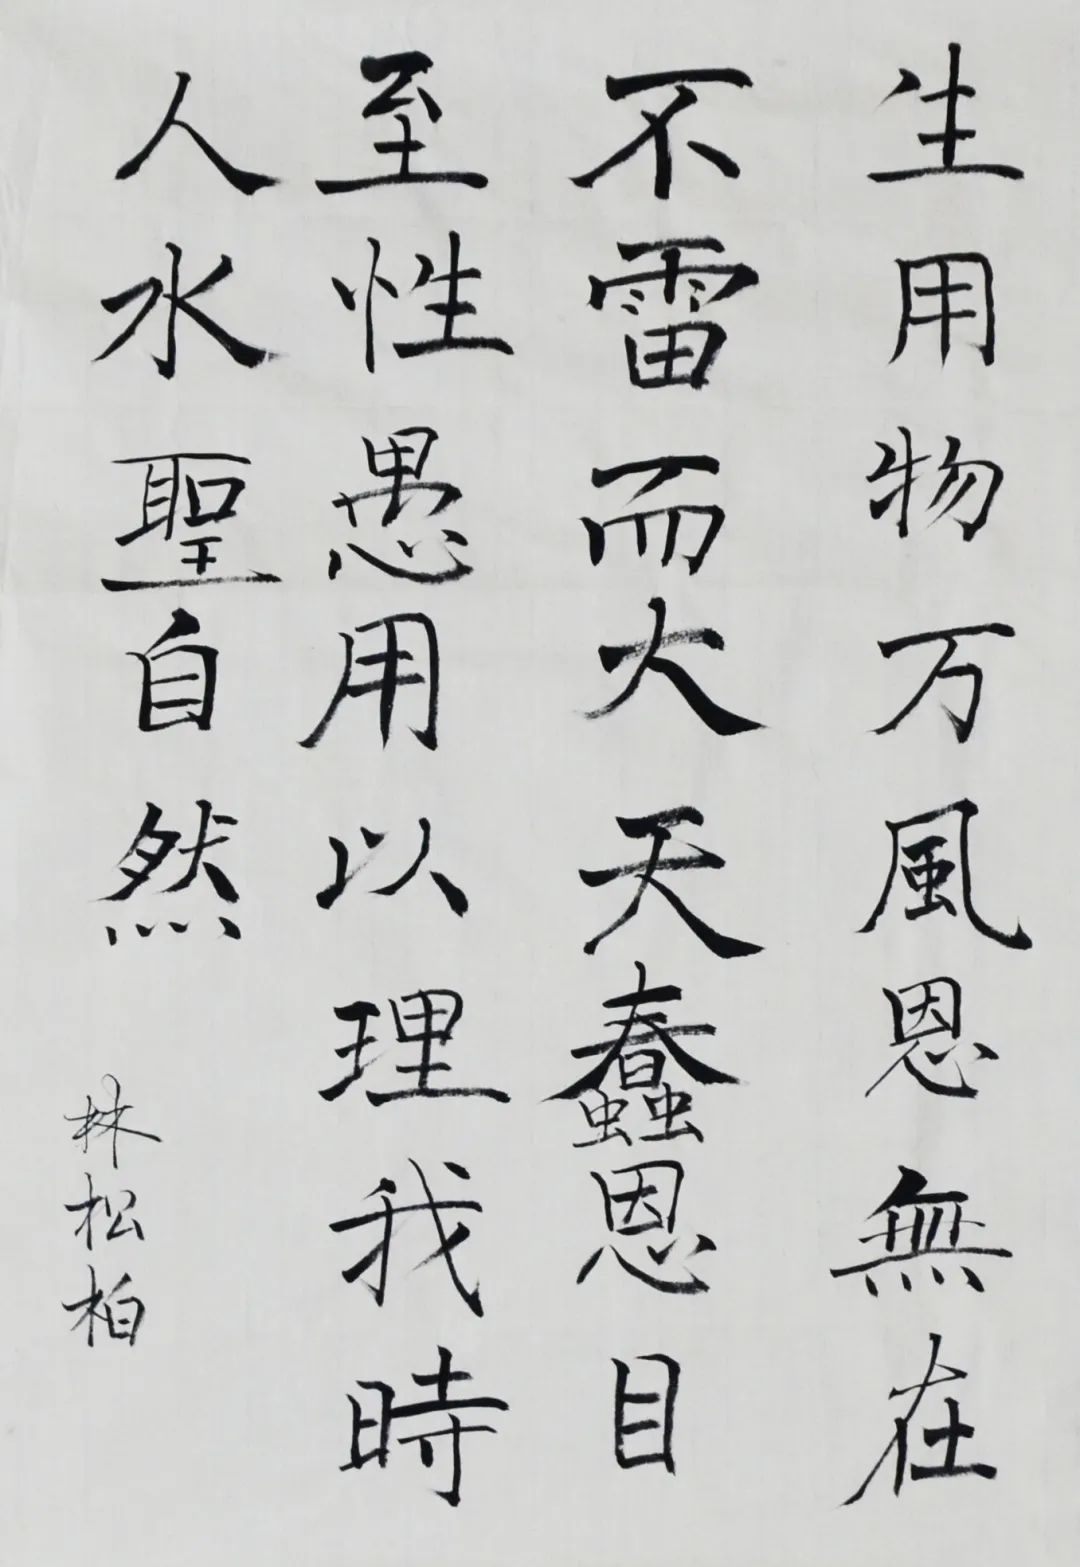 生用物万風恩無在
不雷而大天蠢恩目
至性愚用以理我時
人水聖自然
林松柏